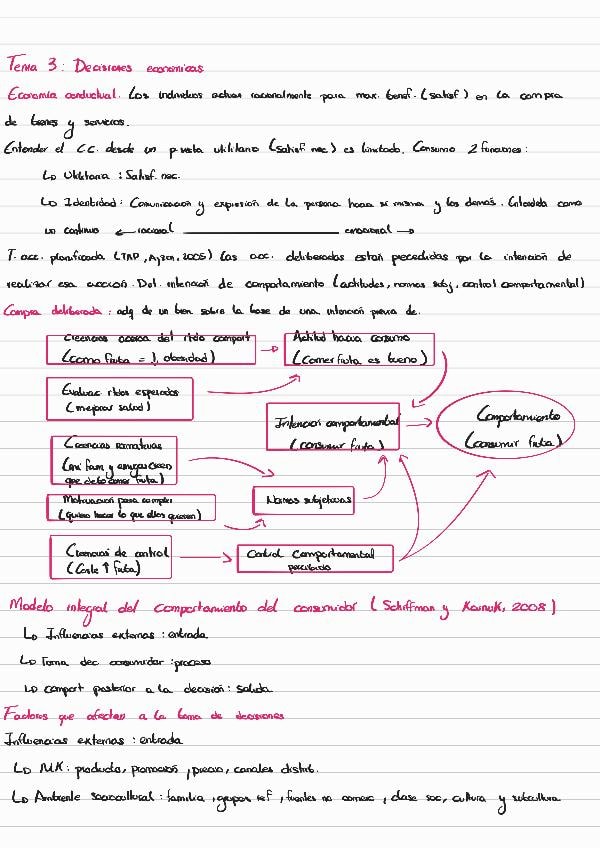 Tema 3: Decisiones económicas
Economía conductual. Los individuos actuan racionalmente para max. benef. (satisf) en la compra
de bienes y servicios.
Entender el CC. desde un p.vista utilitario (satisf nec) es limitado. Consumo 2 funciones:
↳ Utilitaria: Satisf. nec.
↳ Identidad: Comunicación y expresión de la persona hacia si misma y los demás. Entendida como
un continuo ← racional ——— emocional →
T. acc. planificada (TAP, Ajzen, 2005) Las acc. deliberadas están precedidas por la intención de
realizar esa acción. Det. intención de comportamiento (actitudes, normas subj, control comportamental)
Compra deliberada: adq de un bien sobre la base de una intención previa de.
Creencias acerca del rtdo comport
(como fruta = ↓ obesidad)
Actitud hacia consumo
(Comer fruta es bueno)
Evaluac rtdos esperados
(mejorar salud)
Intención comportamental
(consumir fruta)
Comportamiento
(consumir fruta)
Creencias normativas
(mi fam y amigos creen
que debo comer fruta)
Motivación para cumplir
(quiero hacer lo que ellos quieren)
Normas subjetivas
Creencias de control
(Coste ↑ fruta)
Control Comportamental
percibido
Modelo integral del comportamiento del consumidor (Schiffman y Kanuk, 2008)
↳ Influencias externas: entrada
↳ Toma dec. consumidor: proceso
↳ comport posterior a la decisión: salida
Factores que afectan a la toma de decisiones
Influencias externas: entrada
↳ MK: producto, promoción, precio, canales distrib.
↳ Ambiente sociocultural: familia, grupos ref, fuentes no comerc, clase soc, cultura y subcultura